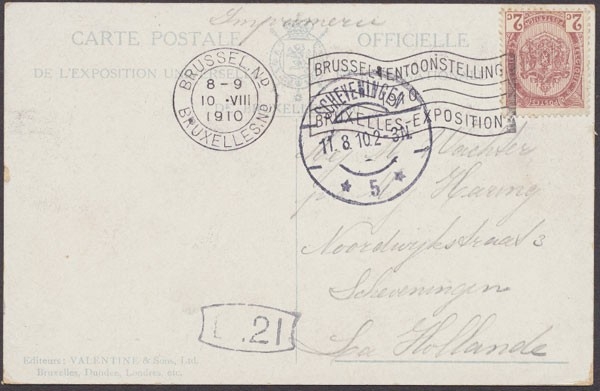 Imprimerie
CARTE POSTALE OFFICIELLE
DE L'EXPOSITION UNIVERSELLE
DE BRUXELLES
BRUSSEL.Nd
8-9
10 ·VIII
1910
BRUXELLES.Nd
BRUSSEL-TENTOONSTELLING
BRUXELLES-EXPOSITION
SCHEVENINGEN
11.8.10.2-3N.
5
2c
2c
Wachter
Haring
Noordwijkstraat 3
Scheveningen
La Hollande
.21
Editeurs: VALENTINE & Sons, Ltd.
Bruxelles, Dundee, Londres, etc.